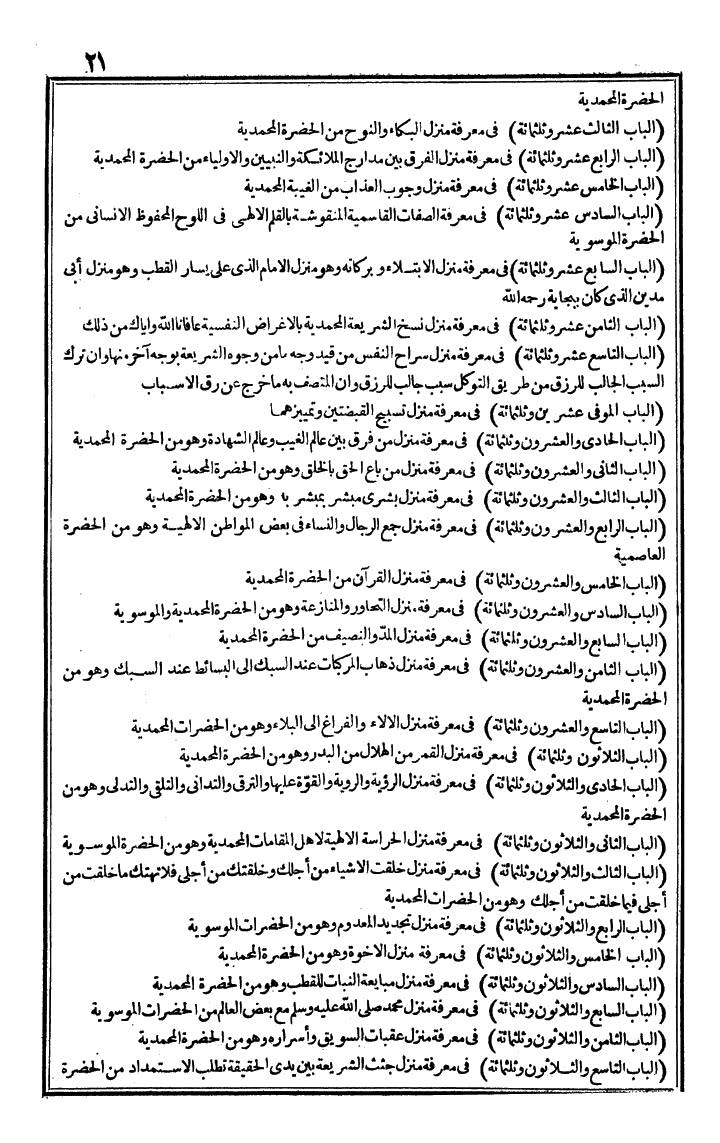 ٢١
الحضرة المحمدية
(الباب الثالث عشر وثلثمائة) فى معرفة منزل البكاء والنوح من الحضرة المحمدية
(الباب الرابع عشر وثلثمائة) فى معرفة منزل الفرق بين مدارج الملائكة والنبيين والاولياء من الحضرة المحمدية
(الباب الخامس عشر وثلثمائة) فى معرفة منزل وجوب العذاب من الغيبة المحمدية
(الباب السادس عشر وثلثمائة) فى معرفة الصفات القاسمية المنقوشة بالقلم الالهى فى اللوح المحفوظ الانسانى من
الحضرة الموسوية
(الباب السابع عشر وثلثمائة) فى معرفة منزل الابتلاء وبركاته وهو منزل الامام الذى على يسار القطب وهو منزل أبى
مدين الذى كان ببجاية رحمه الله
(الباب الثامن عشر وثلثمائة) فى معرفة منزل نسخ الشريعة المحمدية بالاغراض النفسية عافانا الله واياك من ذلك
(الباب التاسع عشر وثلثمائة) فى معرفة منزل سراح النفس من قيد وجه ما من وجوه الشريعة بوجه آخر منها وان ترك
السبب الجالب للرزق من طريق التوكل سبب جالب للرزق وان المتصف به ما خرج عن رق الاسباب
(الباب الموفى عشرين وثلثمائة) فى معرفة منزل تسبيح القبضتين وتمييزهما
(الباب الحادى والعشرون وثلثمائة) فى معرفة منزل من فرق بين عالم الغيب وعالم الشهادة وهو من الحضرة المحمدية
(الباب الثانى والعشرون وثلثمائة) فى معرفة منزل من باع الحق بالخلق وهو من الحضرة المحمدية
(الباب الثالث والعشرون وثلثمائة) فى معرفة منزل بشرى مبشر بمبشر به وهو من الحضرة المحمدية
(الباب الرابع والعشرون وثلثمائة) فى معرفة منزل جمع الرجال والنساء فى بعض المواطن الالهية وهو من الحضرة
العاصمية
(الباب الخامس والعشرون وثلثمائة) فى معرفة منزل القرآن من الحضرة المحمدية
(الباب السادس والعشرون وثلثمائة) فى معرفة منزل التحاور والمنازعة وهو من الحضرة المحمدية والموسوية
(الباب السابع والعشرون وثلثمائة) فى معرفة منزل المدّ والنصيف من الحضرة المحمدية
(الباب الثامن والعشرون وثلثمائة) فى معرفة منزل ذهاب المركبات عند السبك الى البسائط عند السبك وهو من
الحضرة المحمدية
(الباب التاسع والعشرون وثلثمائة) فى معرفة منزل الالاء والفراغ الى البلاء وهو من الحضرات المحمدية
(الباب الثلاثون وثلثمائة) فى معرفة منزل القمر من الهلال من البدر وهو من الحضرة المحمدية
(الباب الحادى والثلاثون وثلثمائة) فى معرفة منزل الرؤية والروية والقوّة عليها والترقى والتدانى والتلقى والتدلى وهو من
الحضرة المحمدية
(الباب الثانى والثلاثون وثلثمائة) فى معرفة منزل الحراسة الالهية لاهل المقامات المحمدية وهو من الحضرة الموسوية
(الباب الثالث والثلاثون وثلثمائة) فى معرفة منزل خلقت الاشياء من أجلك وخلقتك من أجلى فلا تهتك ما خلقت من
أجلى فيما خلقت من أجلك وهو من الحضرات المحمدية
(الباب الرابع والثلاثون وثلثمائة) فى معرفة منزل تجديد المعدوم وهو من الحضرات الموسوية
(الباب الخامس والثلاثون وثلثمائة) فى معرفة منزل الاخوة وهو من الحضرة المحمدية
(الباب السادس والثلاثون وثلثمائة) فى معرفة منزل مبايعة النبات للقطب وهو من الحضرة المحمدية
(الباب السابع والثلاثون وثلثمائة) فى معرفة منزل محمد صلى الله عليه وسلم مع بعض العالم من الحضرات الموسوية
(الباب الثامن والثلاثون وثلثمائة) فى معرفة منزل عقبات السويق وأسراره وهو من الحضرة المحمدية
(الباب التاسع والثلاثون وثلثمائة) فى معرفة منزل جثث الشريعة بين يدى الحقيقة تطلب الاستمداد من الحضرة